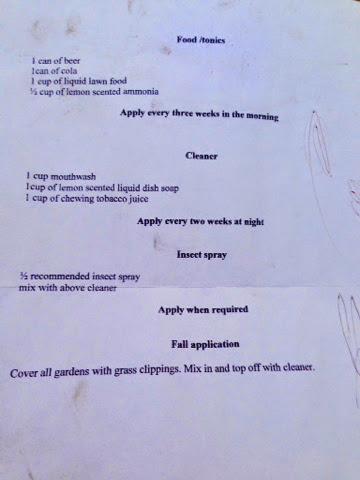 Food /tonics
1 can of beer
1can of cola
1 cup of liquid lawn food
½ cup of lemon scented ammonia
Apply every three weeks in the morning
Cleaner
1 cup mouthwash
1cup of lemon scented liquid dish soap
1 cup of chewing tobacco juice
Apply every two weeks at night
Insect spray
½ recommended insect spray
mix with above cleaner
Apply when required
Fall application
Cover all gardens with grass clippings. Mix in and top off with cleaner.